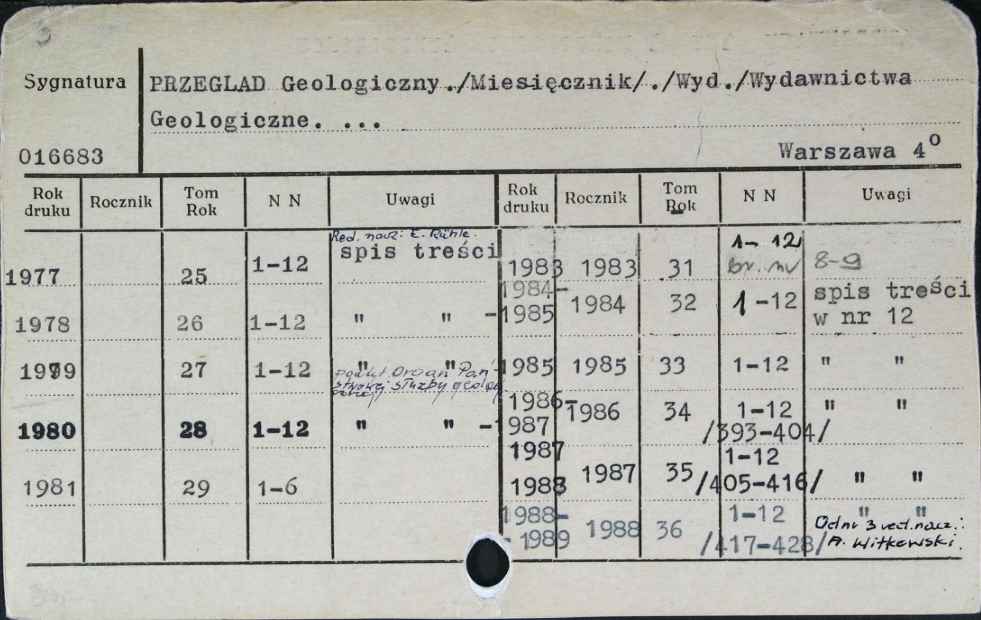 Sygnatura
PRZEGLAD Geologiczny./Miesięcznik/./Wyd./Wydawnictwa
Geologiczne. ...
016683
Warszawa 4º
Rok druku Rocznik Tom Rok N N Uwagi Rok druku Rocznik Tom Rok N N Uwagi
Red. nacz: E. Rühle.
1977 25 1-12 spis treści
1978 26 1-12 " " -
1979 27 1-12 " "
Organ Pań
stwowej służby geolog
1980 28 1-12 " " -
1981 29 1-6
1983 1983 31 1-12
br. nr 8-9
1984-
1985 1984 32 1-12 spis treści
w nr 12
1985 1985 33 1-12 " "
1986-
1987 1986 34 1-12 " "
/393-404/
1987
1988 1987 35 1-12
/405-416/ " "
1988-
- 1989 1988 36 1-12 " "
/417-428/
Od nr 3 red. nacz.:
A. Witkowski.